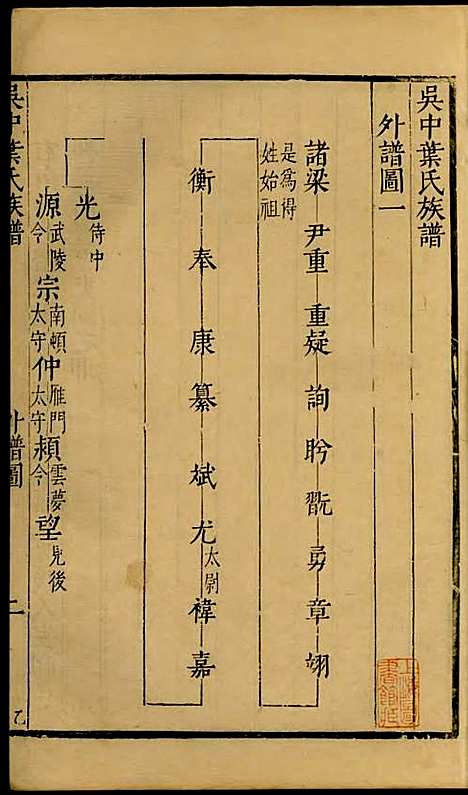 吳中葉氏族譜
外譜圖一
諸梁 是為得姓始祖 尹重 重疑 詢 肹 翫 勇 章 翊
衡 奉 康 纂 斌 尤 太尉 禕 嘉
光 侍中
源 武陵令 宗 南頓太守 仲 雁門太守 熲 雲夢令 望 見後
吳中葉氏族譜 外譜圖 二
上海圖書館藏